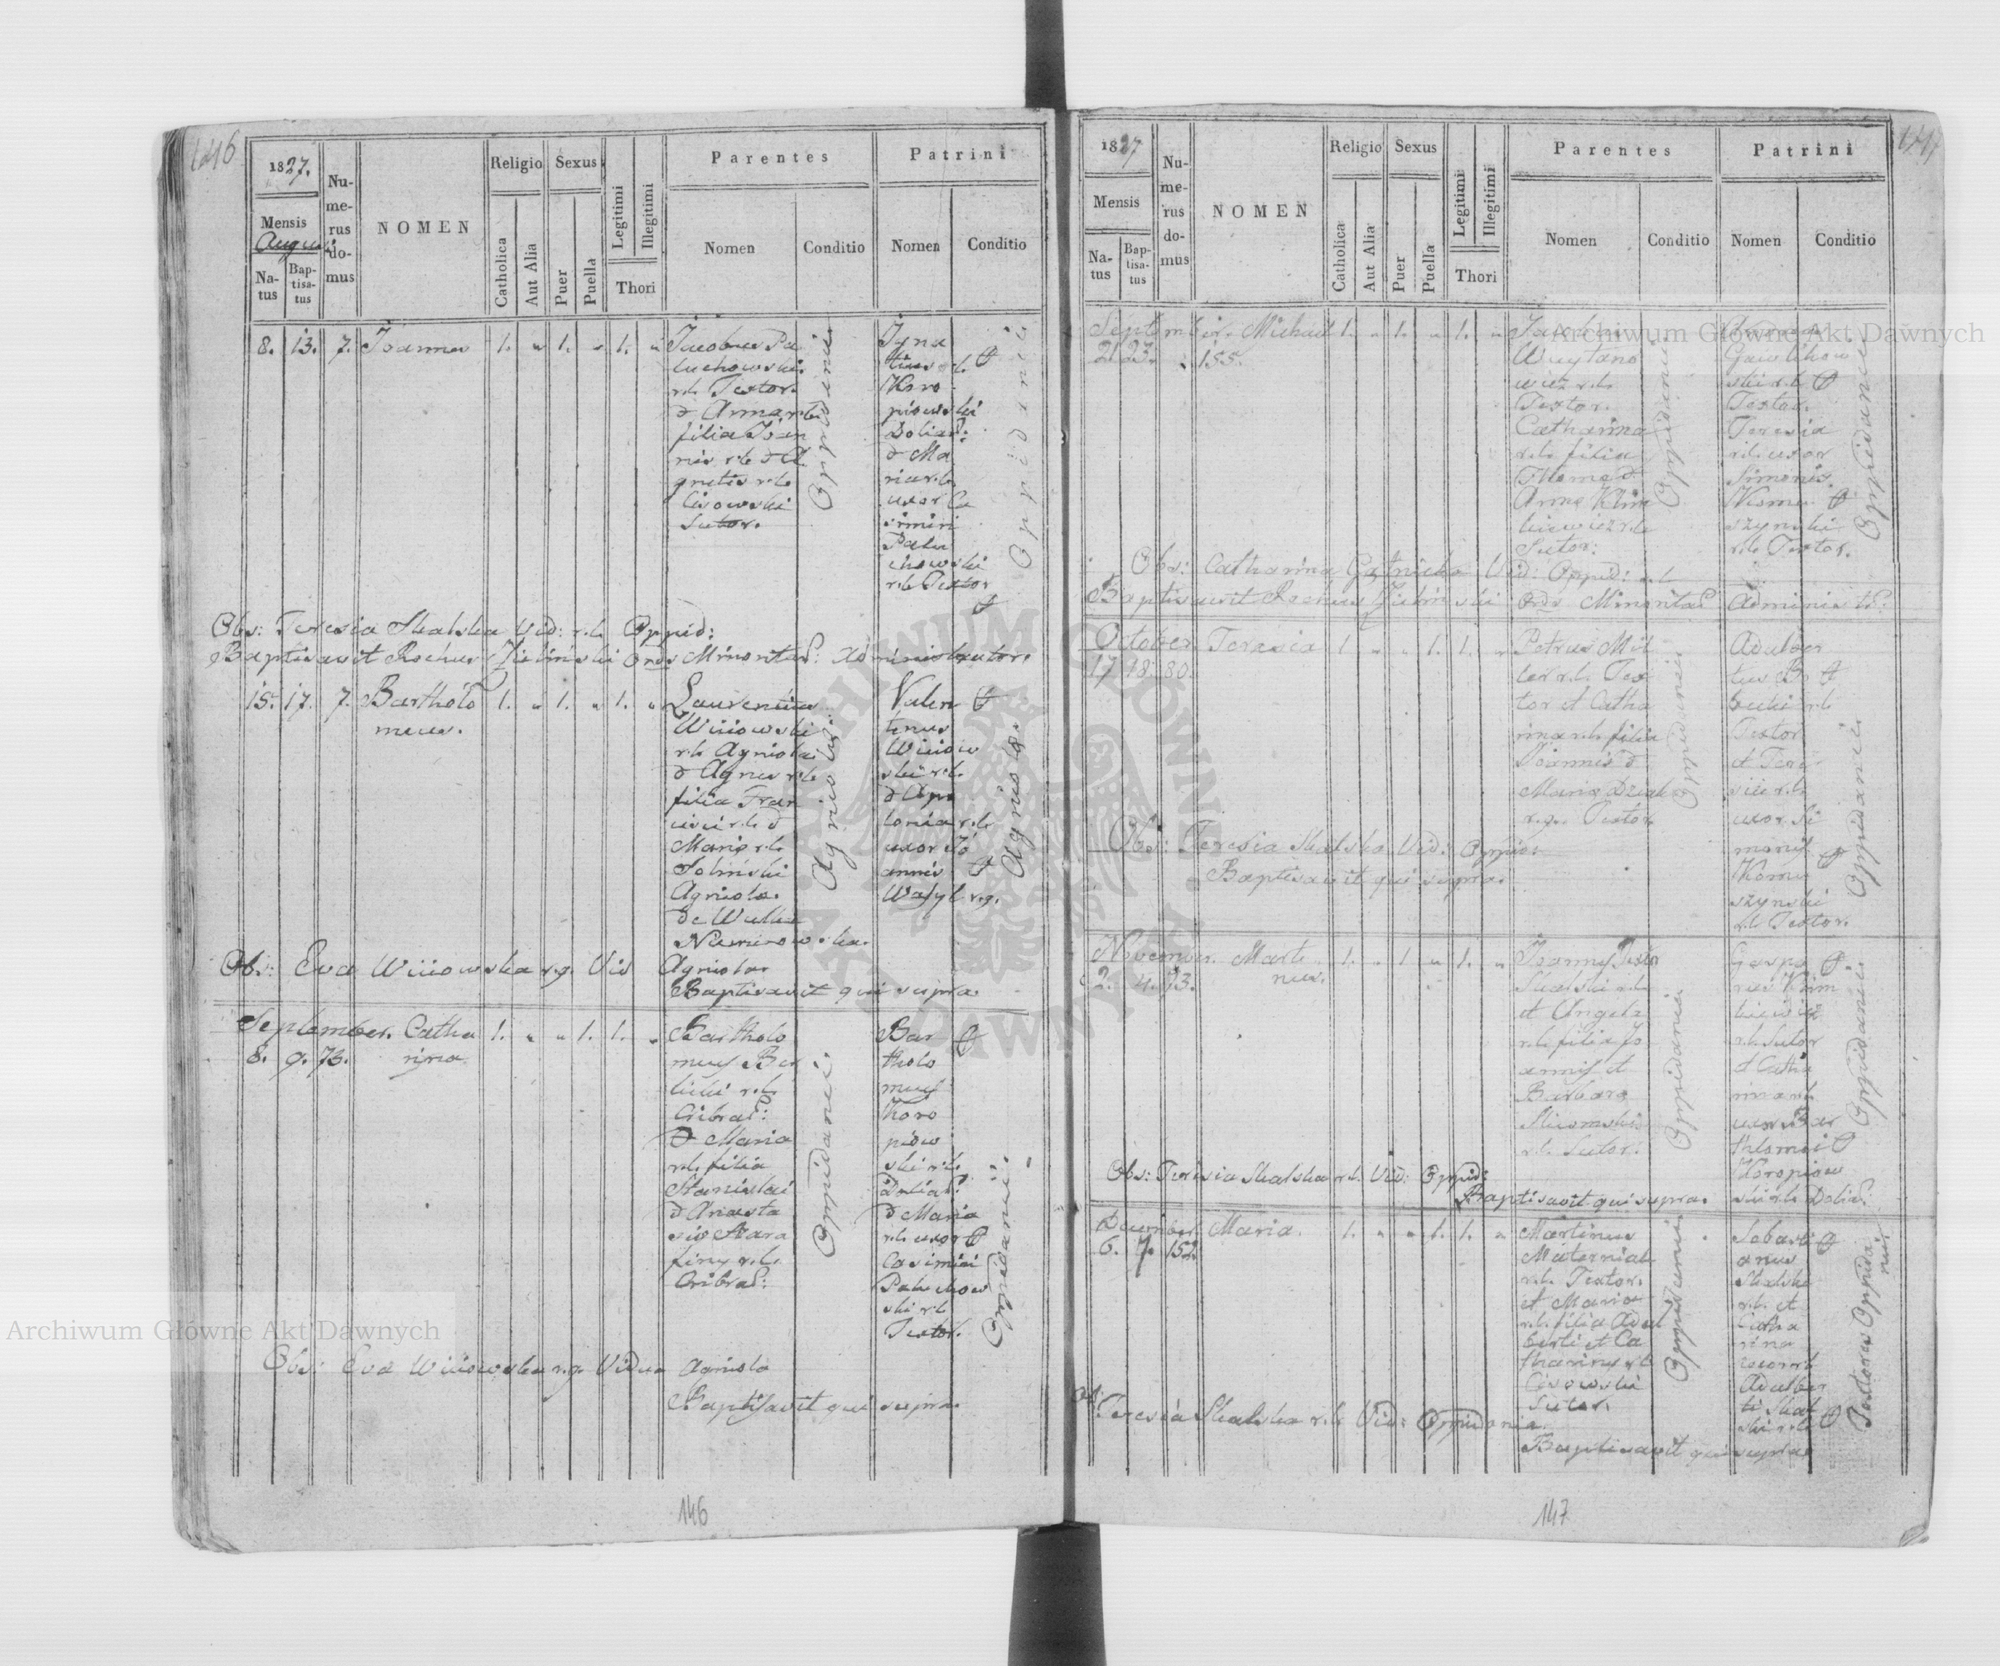 146
1827.
Mensis
Augus
Natus
Baptisatus
Numerus domus
NOMEN
Religio
Catholica
Aut Alia
Sexus
Puer
Puella
Legitimi
Illegitimi
Thori
Parentes
Nomen
Conditio
Patrini
Nomen
Conditio
8. 13. 7. Joannes 1. „ 1. „ 1. „
Jacobus Pa
luchowski
r.l. Textor.
et Anna r.l.
filia Joan
nis r.l. et A
gnetis r.l.
Cisowski
Sutor.
Oppidanii
Igna
tius r.l.
Koro
piowski
Doliad:
et Ma
ria r.l.
uxor Ca
simiri
Palu
chowski
r.l. Textor
Oppidanii
Obs: Teresia Skalska Vid: r.l. Oppid:
Baptisavit Rochus Zieliński Ords Minoritad: Administrator.
15. 17. 7. Bartholo 1. „ 1. „ 1. „
meus.
Laurentius
Wiiowski
r.l. Agricola
et Agnes r.l.
filia Fran
cisci r.l. et
Maria r.l.
Soliński
Agricola.
de Wulka
Agricola
Valen
tinus
Wiiow
ski r.l.
et Apo
lonia r.l.
uxor Jo
annis
Wasyl r.g.
Agricola.
Obs: Eva Wiiowska r.g. Vid Agricola
Baptisavit qui supra.
September. Catha 1. „ „ 1. 1. „
8. 9. 76. rina
Bartholo
meus
r.l.
Cribrad:
et Maria
r.l. filia
Stanislai
et Anasta
r.l.
Cribrad:
Oppidanii
Bar
tholo
meus
Koro
piow
ski r.l.
Doliad:
et Maria
r.l. uxor
Casimiri
Paluchow
ski r.l.
Textor.
Oppidanii
Obs: Eva Wiiowska r.g. Vidua Agricola
Baptisavit qui supra.
146
147
1827
Mensis
Natus
Baptisatus
Numerus domus
NOMEN
Religio
Catholica
Aut Alia
Sexus
Puer
Puella
Legitimi
Illegitimi
Thori
Parentes
Nomen
Conditio
Patrini
Nomen
Conditio
September. Michael 1. „ 1. „ 1. „
21 23. 155.
Wuytano
wicz r.l.
Textor.
Catharina
r.l. filia
Thoma et
Anna Klim
kiewicz r.l.
Sutor:
Oppidanii
Gawlikow
ski r.l.
Textor.
Teresia
r.l. uxor
Simonis
Komu
szynski
r.l. Textor.
Oppidanii
Obs: Catharina Vid: Oppid: r.l.
Baptisavit Rochus Zieliński Ords Minoritad: Administr:
October. Teresia 1 „ „ 1. 1. „
17 18. 80.
Petrus Mil
ler r.l. Tex
tor et Catha
rina r.l. filia
Joannis et
Maria
r.g. Textor
Oppidanii
Adalber
tus
r.l.
Textor
et Tere
sia r.l.
uxor Si
monis
Komu
szynski
r.l. Textor.
Oppidanii
Obs: Teresia Skalska Vid: Oppid:
Baptisavit qui supra.
November. Marti 1. „ 1 „ 1. „
2. 4. 73. nus.
Joannes Textor
Skalski r.l.
et Angela
r.l. filia Jo
annis et
Barbara
r.l. Sutor.
Oppidanii
Gaspa
rus Klim
kiewicz
r.l. Sutor
et Catha
rina r.l.
uxor Bar
tholomei
Koropiow
ski r.l. Doliad:
Oppidanii
Obs: Teresia Skalska r.l. Vid: Oppid:
Baptisavit qui supra.
December. Maria. 1. „ „ 1. 1. „
6. 7. 152.
Martinus
Materniak
r.l. Textor.
et Maria
r.l. filia Adal
berti et Ca
tharina r.l.
Cisowski
Sutor.
Oppidanii
Sebasti
anus
Skalski
r.l. et
Catha
rina
uxor r.l.
Adalber
ti Skal
ski r.l.
Textores Oppida
nii
Obs: Teresia Skalska r.l. Vid: Oppidania
Baptisavit qui supra
147
Archiwum Główne Akt Dawnych
Archiwum Główne Akt Dawnych
ARCHIWUM GŁÓWNE AKT DAWNYCH